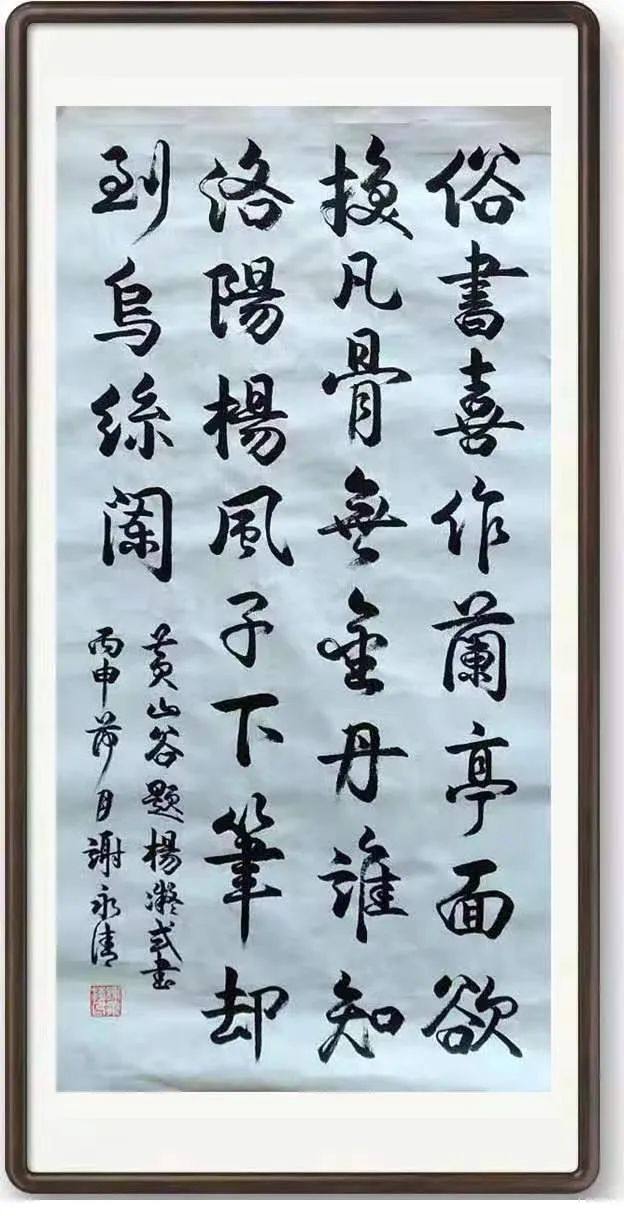 俗書喜作蘭亭面欲
換凡骨無金丹誰知
洛陽楊風子下筆却
到烏絲闌
黄山谷題楊凝式書
丙申荷月謝永清